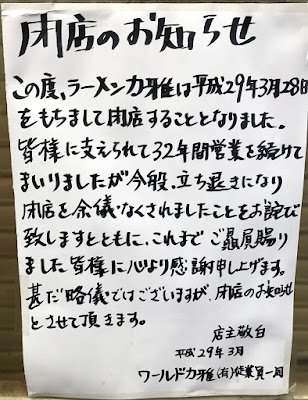 閉店のお知らせ
この度、ラーメン力雅は平成29年3月28日
をもちまして閉店することとなりました。
皆様に支えられて32年間営業を続けて
まいりましたが今般、立ち退きになり
閉店を余儀なくされましたことをお詫び
致しますとともに、これまでご贔屓賜り
ました皆様に心より感謝申し上げます。
甚だ略儀ではございますが、閉店のお知らせ
とさせて頂きます。
店主敬白
平成29年3月
ワールド力雅(有)従業員一同